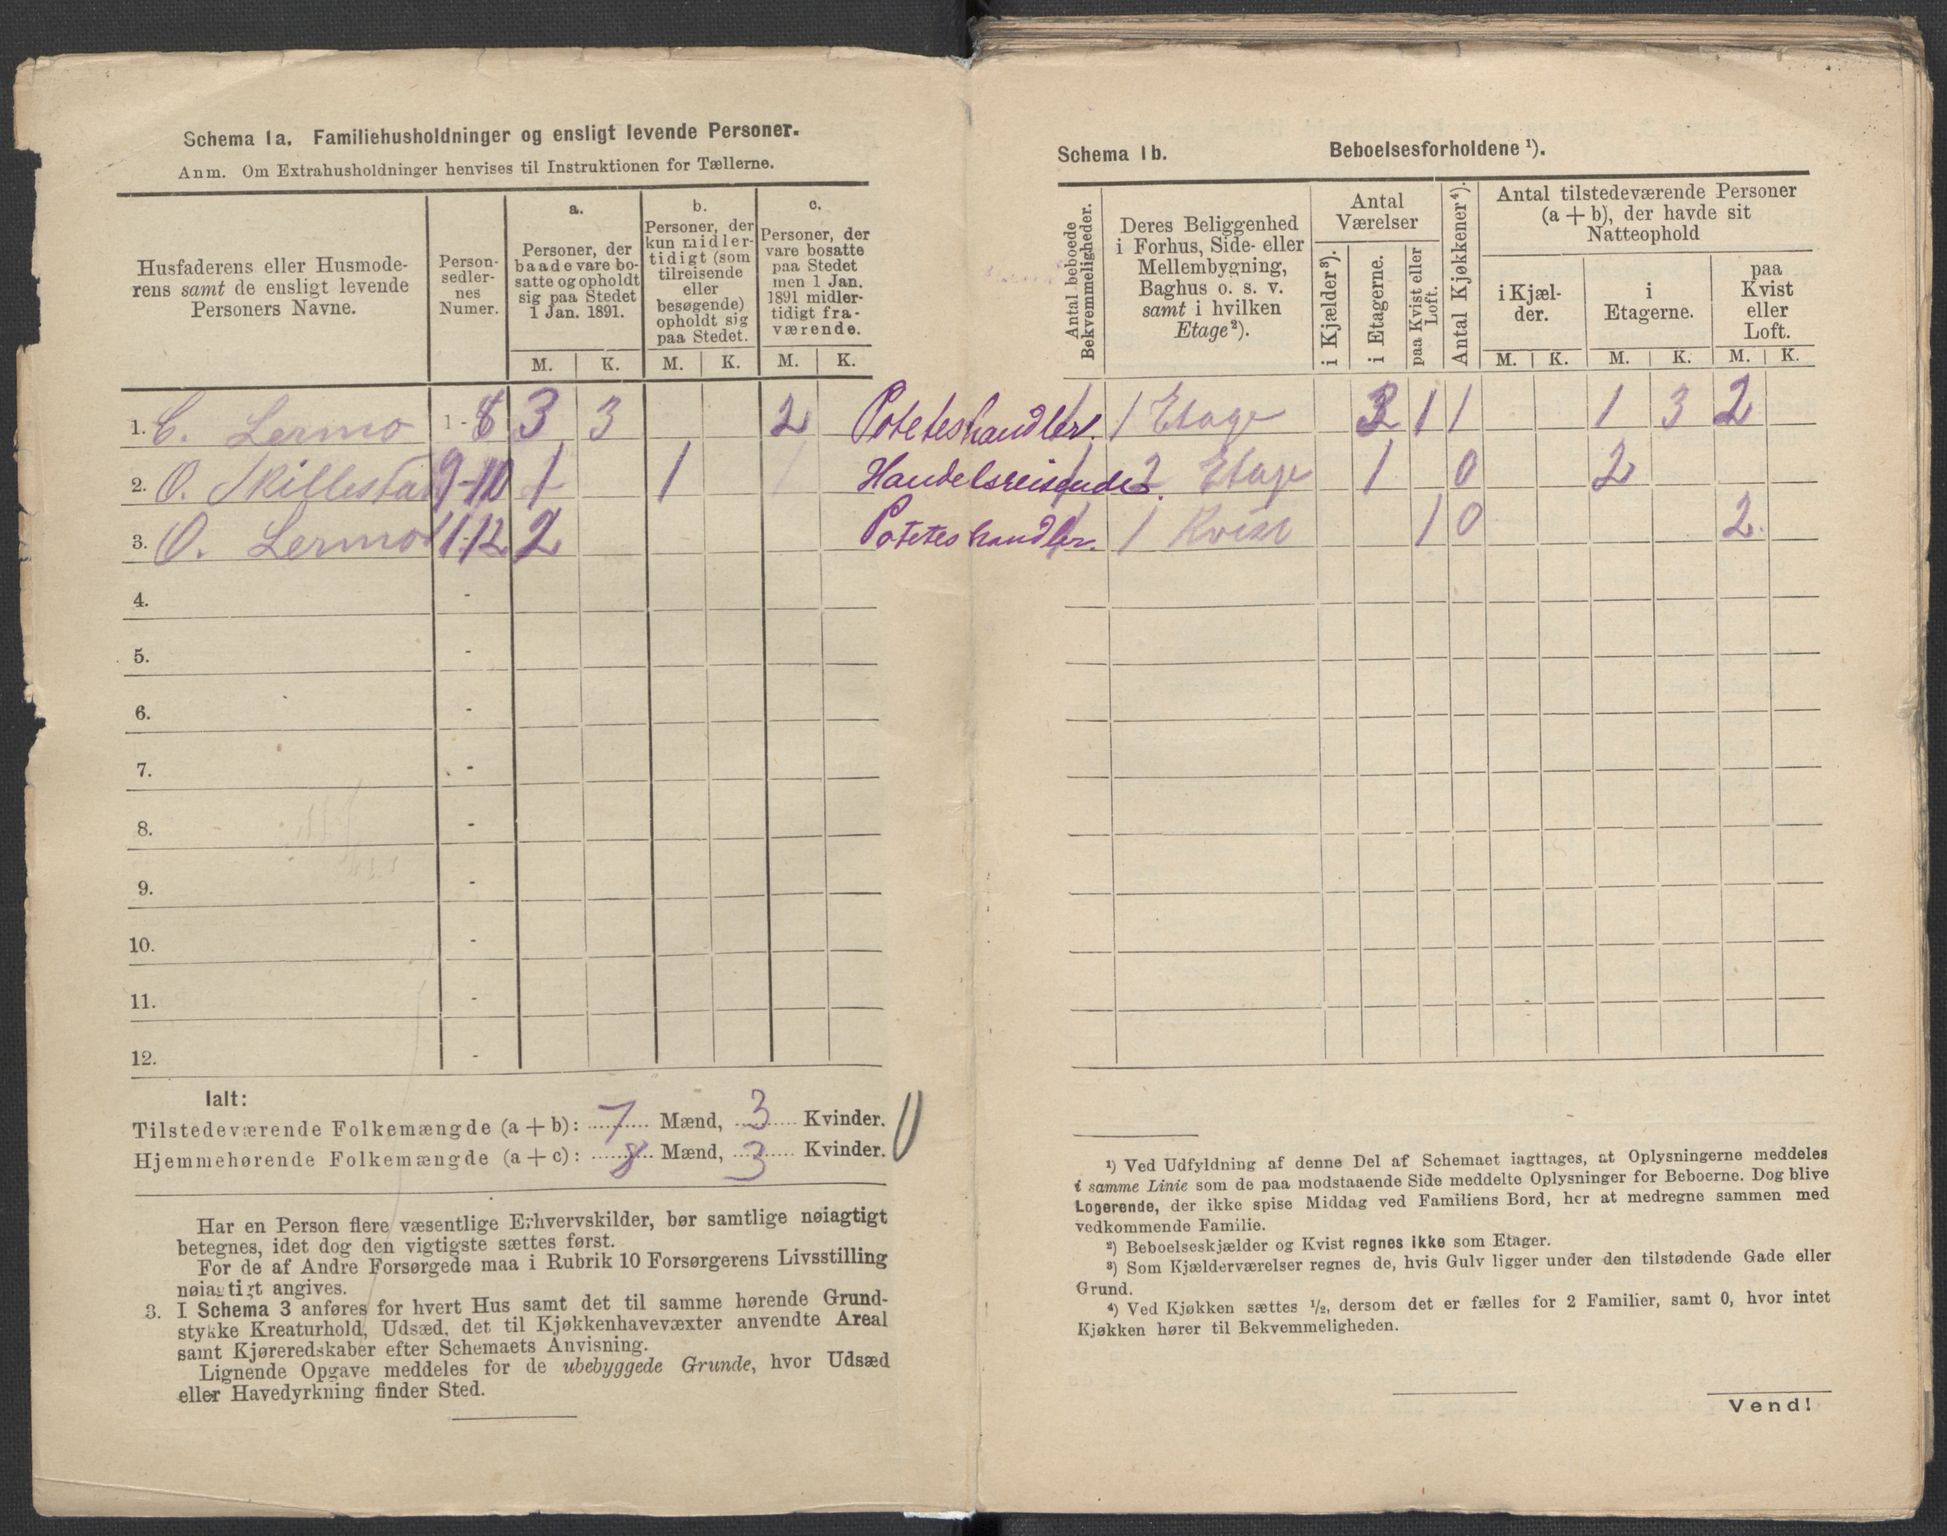 Schema 1a. Familiehusholdninger og ensligt levende Personer.
Anm. Om Extrahusholdninger henvises til Instruktionen for Tællerne.
Husfaderens eller Husmode-
rens samt de ensligt levende
Personers Navne.
Person-
sedler-
nes
Numer.
a.
Personer, der
baade vare bo-
satte og opholdt
sig paa Stedet
1 Jan. 1891.
b.
Personer, der
kun midler-
tidigt (som
tilreisende
eller
besøgende)
opholdt sig
paa Stedet.
c.
Personer, der
vare bosatte
paa Stedet
men 1 Jan.
1891 midler-
tidigt fra-
værende.
M. K. M. K. M. K.
1. C. Lermo 1-8 3 3 2
2. O. Skillestad 9-10 1 1
3. O. Lermo 11-12 2
4. -
5. -
6. -
7. -
8. -
9. -
10. -
11. -
12. -
Ialt:
Tilstedeværende Folkemængde (a + b): 7 Mænd, 3 Kvinder.
Hjemmehørende Folkemængde (a + c): 8 Mænd, 3 Kvinder.
Har en Person flere væsentlige Erhvervskilder, bør samtlige nøiagtigt
betegnes, idet dog den vigtigste sættes først.
For de af Andre Forsørgede maa i Rubrik 10 Forsørgerens Livsstilling
nøiagtigt angives.
3. I Schema 3 anføres for hvert Hus samt det til samme hørende Grund-
stykke Kreaturhold, Udsæd, det til Kjøkkenhavevæxter anvendte Areal
samt Kjøreredskaber efter Schemaets Anvisning.
Lignende Opgave meddeles for de ubebyggede Grunde, hvor Udsæd
eller Havedyrkning finder Sted.
Schema 1b. Beboelsesforholdene ¹).
Antal beboede
Bekvemmeligheder.
Deres Beliggenhed
i Forhus, Side- eller
Mellembygning,
Baghus o. s. v.
samt i hvilken
Etage²).
Antal
Værelser
i Kjælder³).
i Etagerne.
paa Kvist eller
Loft.
Antal Kjøkkener⁴).
Antal tilstedeværende Personer
(a + b), der havde sit
Natteophold
i Kjæl-
der.
i
Etagerne.
paa
Kvist
eller
Loft.
M. K. M. K. M. K.
Poteteshandler. 1 1 Etage 3 1 1 1 3 2
Handelsreisende. 1 2 Etage 1 0 2
Poteteshandler. 1 1 Kvist 1 0 2.
¹) Ved Udfyldning af denne Del af Schemaet iagttages, at Oplysningerne meddeles
i samme Linie som de paa modstaaende Side meddelte Oplysninger for Beboerne. Dog blive
Logerende, der ikke spise Middag ved Familiens Bord, her at medregne sammen med
vedkommende Familie.
²) Beboelseskjælder og Kvist regnes ikke som Etager.
³) Som Kjælderværelser regnes de, hvis Gulv ligger under den tilstødende Gade eller
Grund.
⁴) Ved Kjøkken sættes ½, dersom det er fælles for 2 Familier, samt 0, hvor intet
Kjøkken hører til Bekvemmeligheden.
Vend!